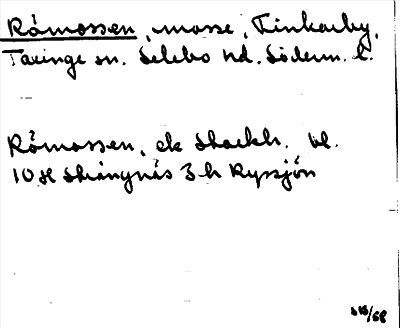 Råmossen, mosse, Finkarby,
Taxinge sn. Selebo hd. Söderm. l.
Råmossen, ek Stockh. bl.
10 H Strängnäs 3 h Ryssjön